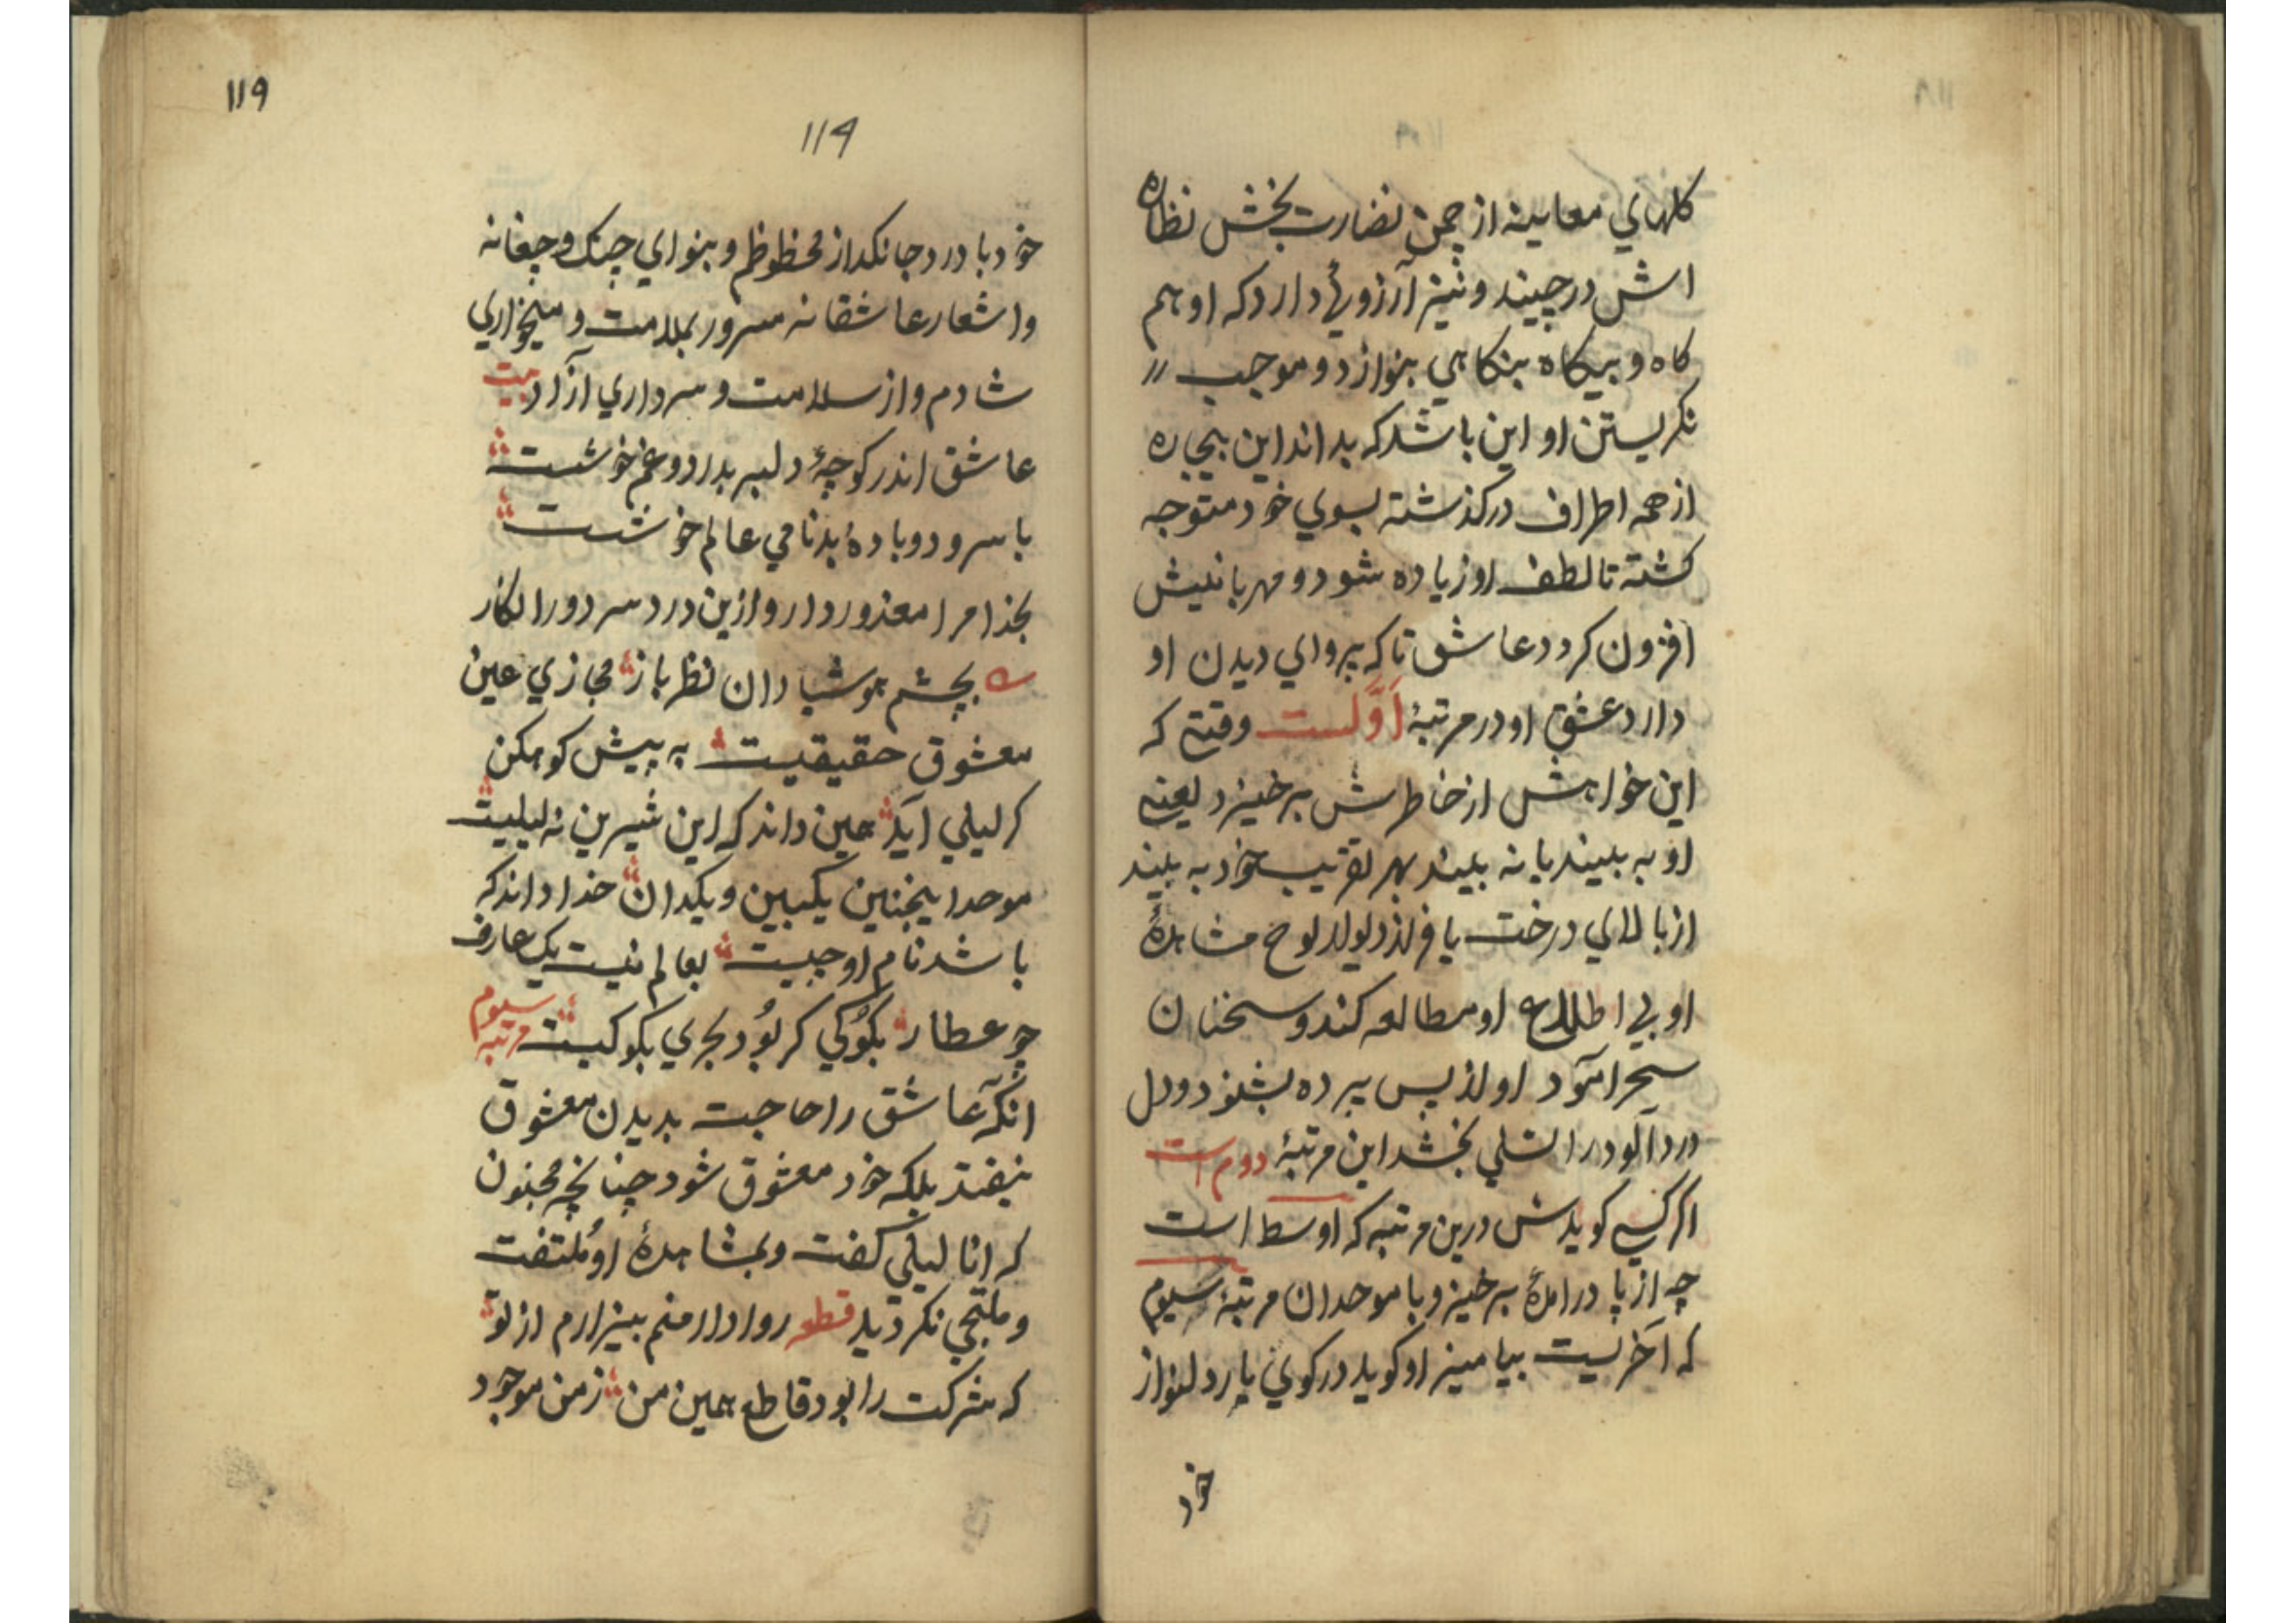 كلهاي معاينه از چمن نضارت بخش نظاره
اش درچيند و نيز آرزوئي دارد كه او هم
كاه و بيكاه بنكاهي بنوازد و موجب
نكريستن او اين باشد كه بداند اين بيچاره
از همه اطراف دركذشته بسوي خود متوجه
كشته تا لطف او زياده شود و مهربانيش
افزون كردد عاشق تا كه پرواي ديدن او
دارد عشق او در مرتبهٔ اَوَّلست وقتي كه
اين خواهش از خاطرش برخيزد يعني
او به بيند يا نه بيند بهر تقريب خود به بيند
از بالاي درخت يا فراز ديوار لوح مشاهدهٔ
او بي اطلاع او مطالعه كند و سخنان
سحرآمود او از پس پرده بشنود و دل
دردآلود را تسلي بخشد اين مرتبهٔ دوم است
اكر كسي كويدش درين مرتبه كه اوسط است
چه از پا درامدهٔ برخيز و با موحدان مرتبهٔ سيوم
كه آخريست بياميز او كويد در كوي يار دلنواز
خود
۱۱۹
۱۱۹
خود با درد جانكداز محظوظم و بنواي چنك و چغانه
و اشعار عاشقانه مسرور بملامت و ميخواري
شادم و از سلامت و سرداري آزاد بيت
عاشق اندر كوچهٔ دلبر بدرد و غم خوشست
با سرود و بادهٔ بدنامي عالم خوشست
بخدا مرا معذور دار و ازين درد سر دور انكار
بچشم هوشيار دان نظرباز مجازي عين
معشوق حقيقيست به پيش كوهكن
كر ليلي آيد همين داند كه اين شيرين نه ليليست
موحد اينچنين يكبين و يكدان خدا داند كه
باشد نام او چيست بعالم نيست يك عارف
چو عطار بكُوكي كر بُود بحري بكو كيست مرتبه سيوم
آنكه عاشق را حاجت بديدن معشوق
نيفتد بلكه خود معشوق شود چنانچه مجنون
كه انا ليلي كفت و بمشاهدهٔ او مُلتفت
و ملتجي نكرديد قطعه روادار منم بيزارم از تو
كه شركت را بود قاطع همين من ز من موجود